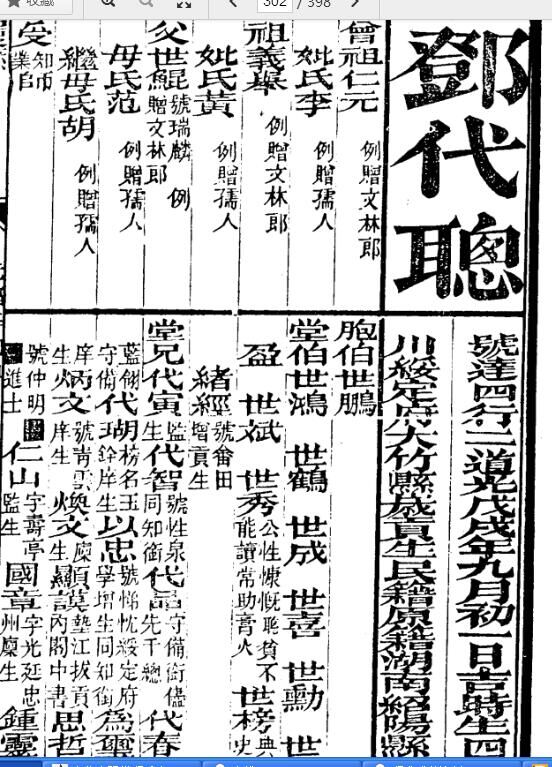 收藏
302 / 398
鄧代聰
號達四行二道光戊戌年九月初一日吉時生四
川綏定府大竹縣歲貢生民籍原籍湖南紹陽縣
曾祖仁元 例贈文林郎
妣氏李 例贈孺人
祖義舉 例贈文林郎
妣氏黃 例贈孺人
父世鯤 號瑞麟 例贈文林郎
母氏范 例贈孺人
繼母氏胡 例贈孺人
受知師
業師
胞伯世鵬
堂伯世鴻 世鶴 世成 世喜 世勳 世
盈 世斌 世秀 公性慷慨聰貧不能讀常助膏火 世榜 典史
緒經 號畬田 增貢生
堂兄代寅 監生 代智 號性泉 同知銜 代品 守備銜儘先千總 代春
藍翎守備 代瑚 榜名玉銓庠生 以忠 號悌忱綏定府學增生同知銜 為璽
庠生 炳文 號青雲庠生 煥文 廩生 顯謨 墊江拔貢內閣中書 思哲
進士 號仲明 仁山 字壽亭 監生 國章 字光廷忠州廩生 鍾靈